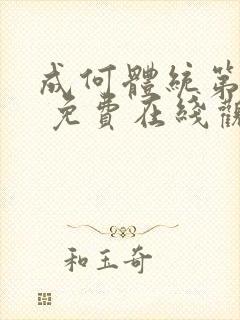 成何體統第
免費在綫觀
和玉奇